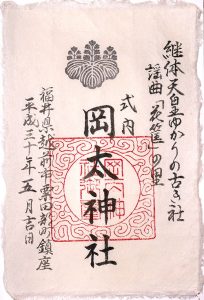 継体天皇ゆかりの古き社
謡曲「花筐」の里
式内
岡太神社
福井県越前市粟田部町鎮座
平成三十年五月吉日